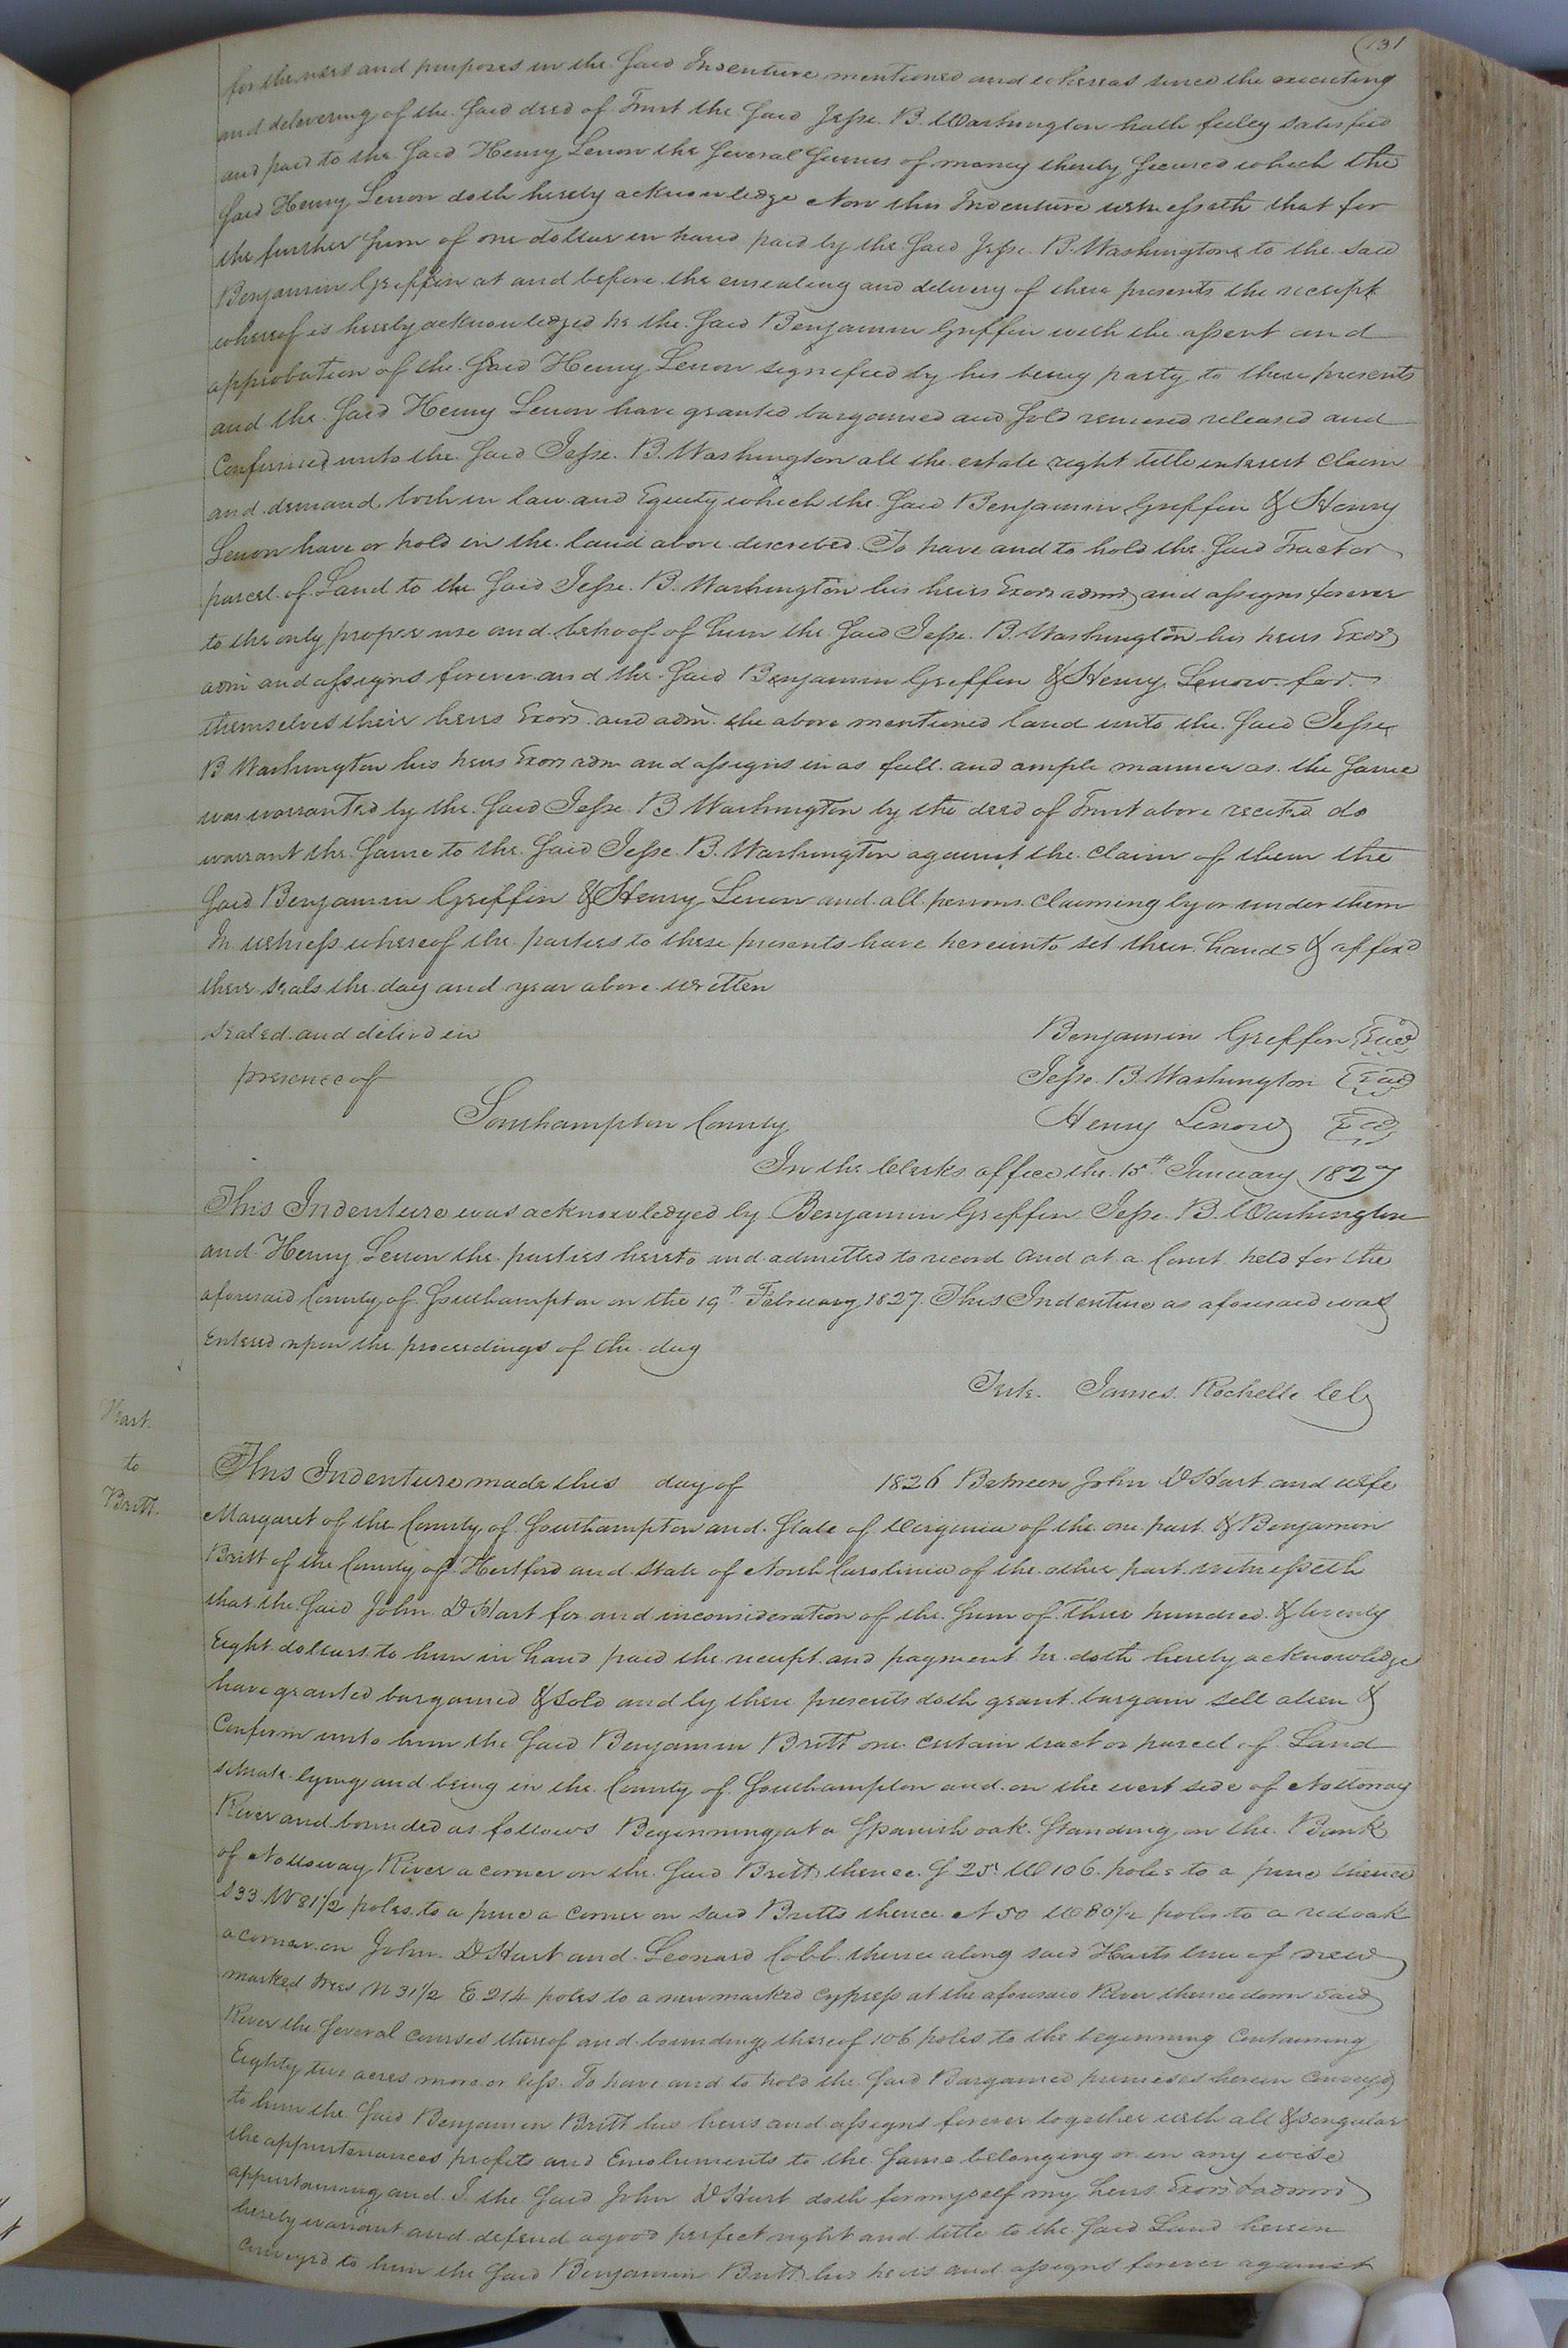 131
for the uses and purposes in the said Indenture mentioned and whereas since the executing
and delivering of the said deed of Trust the said Jesse B. Washington hath fulley satisfied
and paid to the said Henry Lenow the several sums of money thereby secured which the
said Henry Lenow doth hereby acknowledge Now this Indenture witnesseth that for
the further sum of one dollar in hand paid by the said Jesse B. Washington to the said
Benjamin Griffin at and before the ensealing and delivery of these presents the receipt
whereof is hereby acknowledged he the said Benjamin Griffin with the assent and
approbation of the said Henry Lenow signefied by his being party to these presents
and the said Henry Lenow have granted bargained and sold remised released and
Confirmed unto the said Jesse B. Washington all the estate right title interest claim
and demand both in law and Equity which the said Benjamin Griffin & Henry
Lenow have or hold in the land above described To have and to hold the said Tract or
parcel of Land to the said Jesse B. Washington his heirs Exors admrs and assigns forever
to the only proper use and behoof of him the said Jesse B. Washington his heirs Exors
adm and assigns forever and the said Benjamin Griffin & Henry Lenow for
themselves their heirs Exors and adm the above mentioned land unto the said Jesse
B Washington his heirs Exors adm and assigns in as full and ample manner as the same
was warranted by the said Jesse B Washington by the deed of Trust above recited do
warrant the same to the said Jesse B. Washington against the claim of them the
said Benjamin Griffin & Henry Lenow and all persons claiming by or under them
In witness whereof the parties to these presents have hereunto set their hands & affixd
their seals the day and year above written
sealed and deliverd in
Benjamin Griffin Seal
presence of
Jesse B. Washington Seal
Southampton County
Henry Lenow Seal
In the Clerks office the 15th January 1827
This Indenture was acknowledged by Benjamin Griffin Jesse B. Washington
and Henry Lenow the parties hereto and admitted to record and at a Court held for the
aforesaid County of Southampton on the 19th February 1827. This Indenture as aforesaid was
Entered upon the proceedings of the day
Teste. James Rochelle Clk
Hart
to
Britt.
This Indenture made this day of 1826 Between John D Hart and wife
Margaret of the County of Southampton and State of Virginia of the one part & Benjamin
Britt of the County of Hertford and State of North Carolinia of the other part witnesseth
that the said John D Hart for and in consideration of the sum of three hundred & twenty
Eight dollars to him in hand paid the receipt and payment he doth hereby acknowledge
have granted bargained & sold and by these presents doth grant bargain sell alien &
Confirm unto him the said Benjamin Britt one certain tract or parcel of Land
situate lying and being in the County of Southampton and on the west side of Nottoway
River and bounded as follows Beginning at a Spanish oak standing on the Bank
of Nottoway River a corner on the said Britt thence S 25 W 106 poles to a pine thence
S 33 W 81 1/2 poles to a pine a corner on said Britts thence N 50 W 80 1/2 poles to a red oak
a corner on John D Hart and Leonard Cobb thence along said Harts line of new
marked trees N 31 1/2 E 214 poles to a new marked cypress at the aforesaid River thence down said
River the several courses thereof and bounding thereof 106 poles to the beginning containing
Eighty two acres more or less. To have and to hold the said Bargained premises herein conveyd
to him the said Benjamin Britt his heirs and assigns forever together with all & singular
the appurtenances profits and Emoluments to the same belonging or in any wise
appurtaining and I the said John D Hart doth for myself my heirs Exors & admrs
hereby warrant and defend a good perfect right and title to the said Land herein
conveyed to him the said Benjamin Britt his heirs and assigns forever against